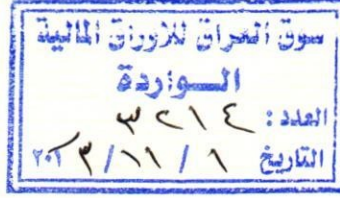 سوق العراق للاوراق المالية
الـــواردة
العدد : ٣٢١٤
التاريخ ١ / ١١ / ٢٠٢٣